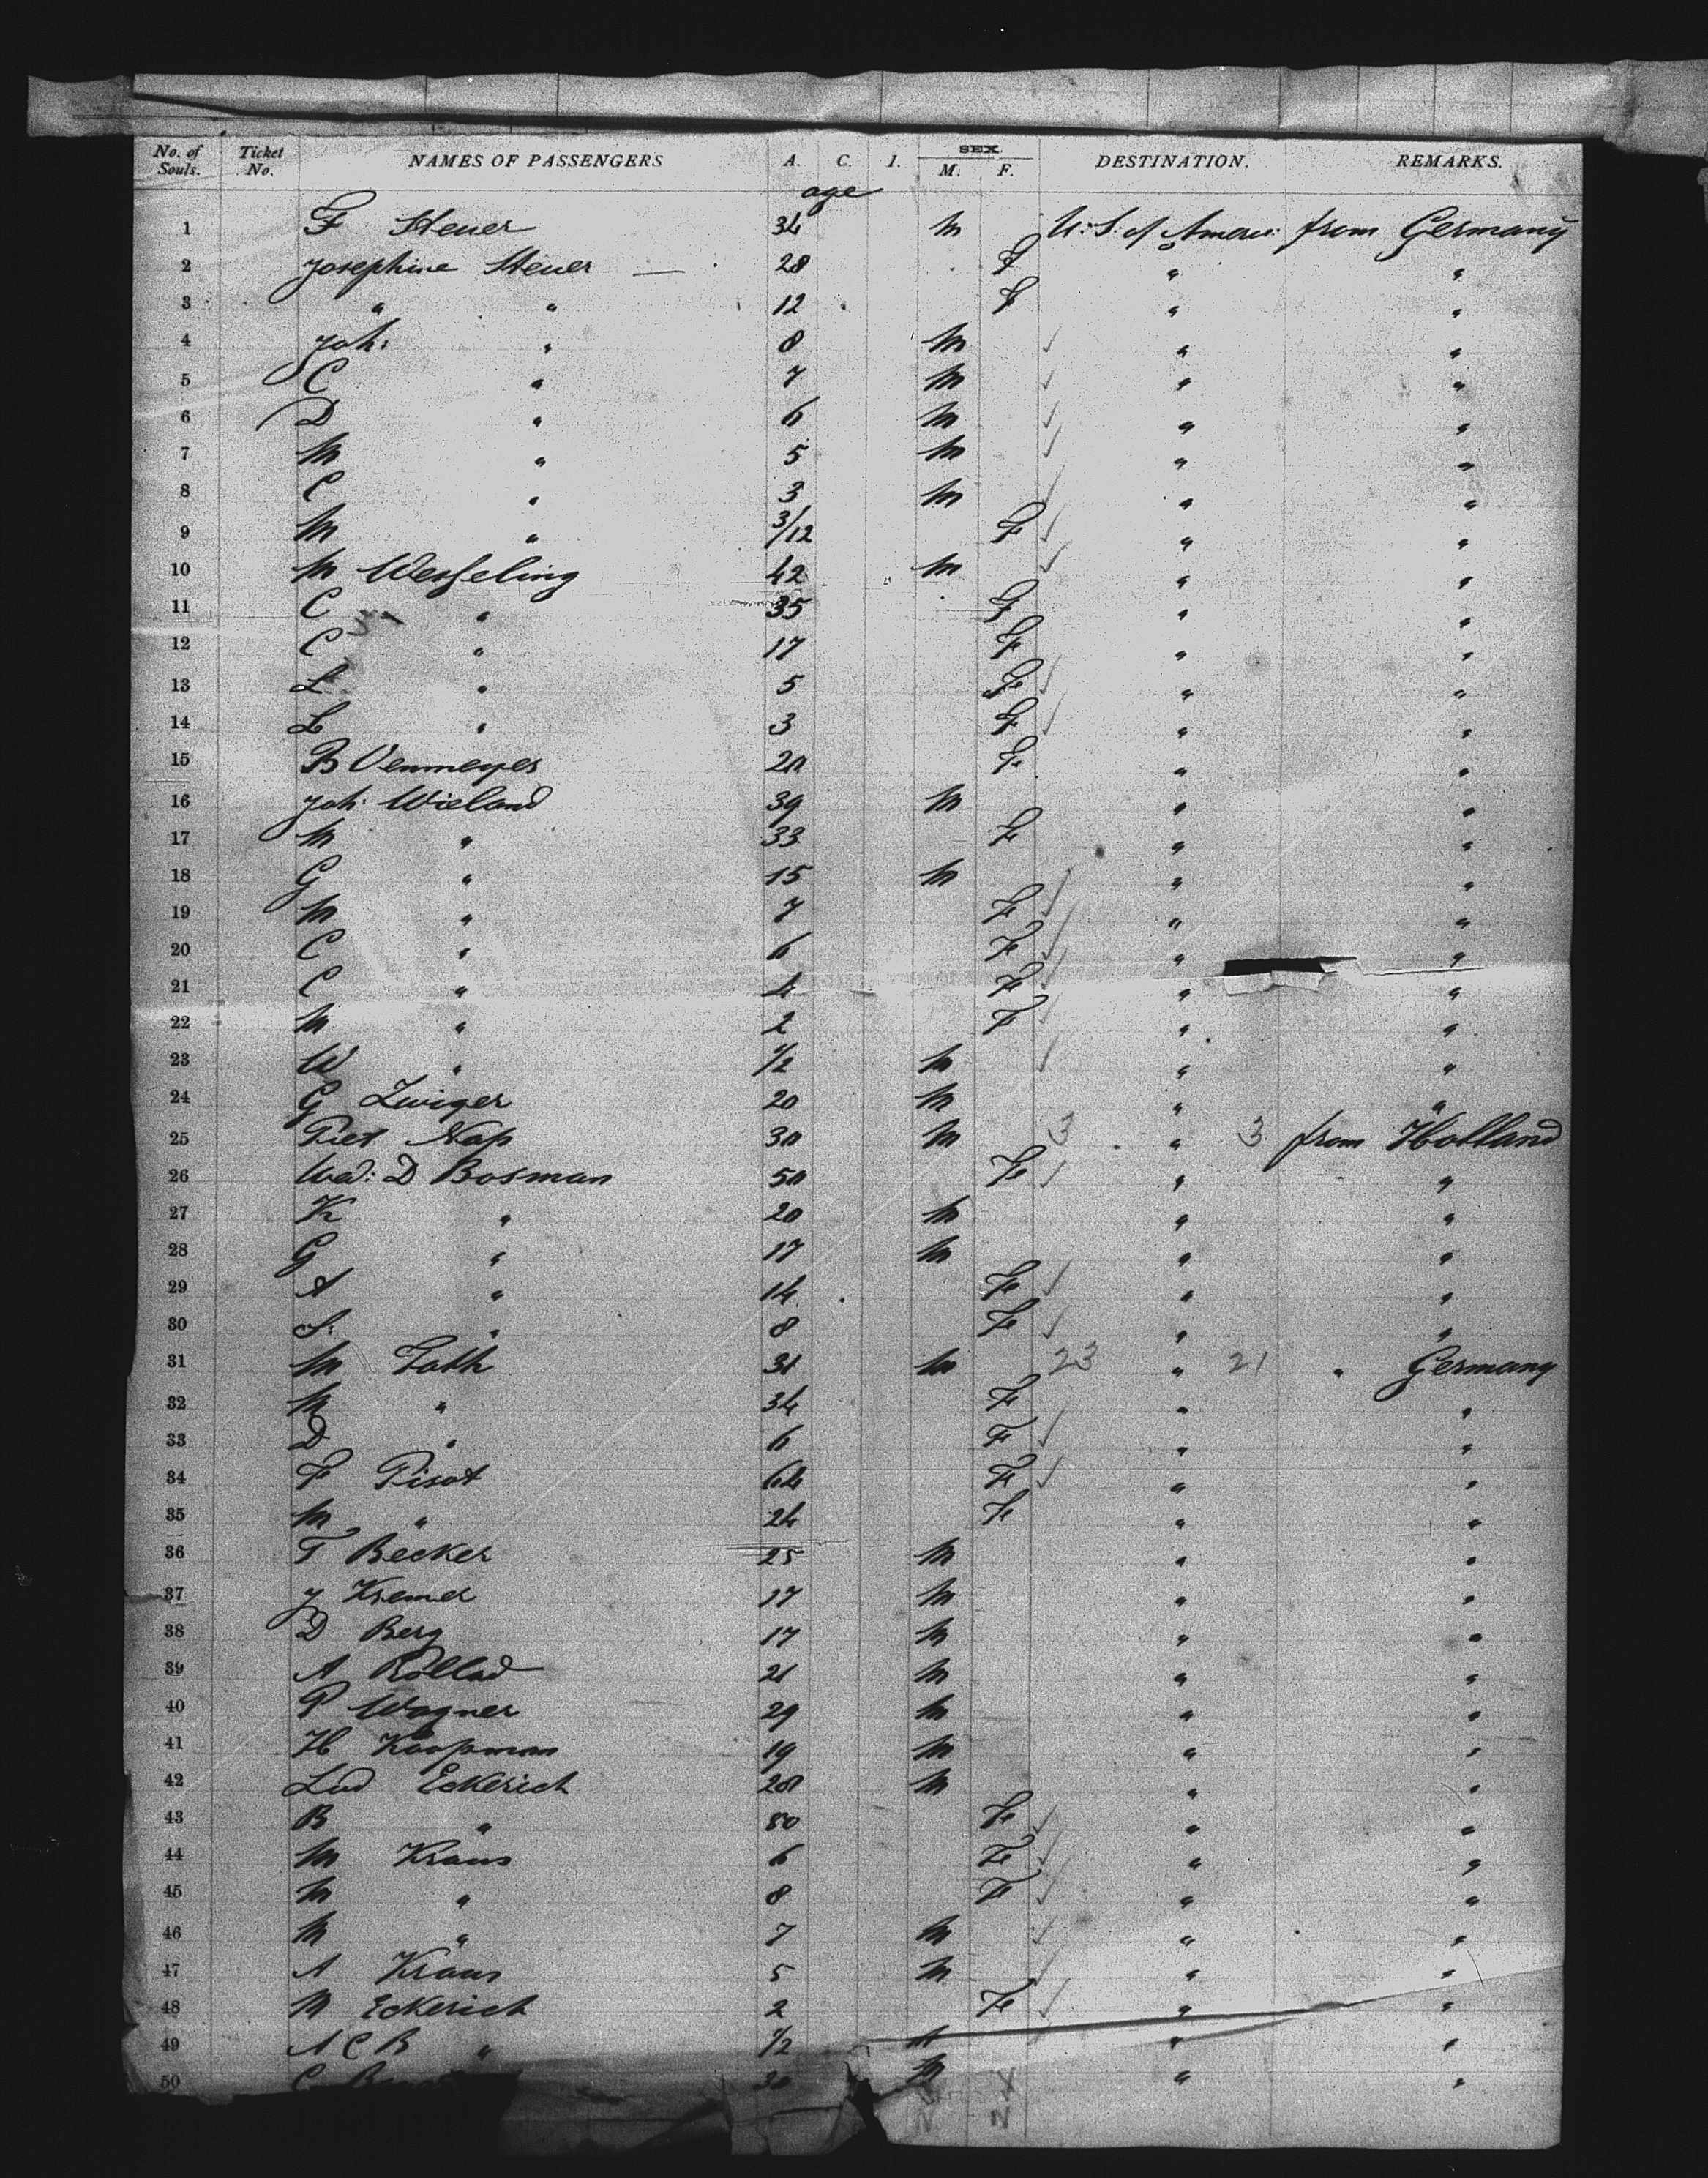 No. of Souls. Ticket No. NAMES OF PASSENGERS A. C. I. SEX. M. F. DESTINATION. REMARKS.
age
1 F Steuer 34 M U. S. of Ameri: from Germany
2 Josephine Steuer — 28 F " "
3 " " 12 F " "
4 Joh: " 8 M " "
5 C " 7 M " "
6 D " 6 M " "
7 M " 5 M " "
8 C " 3 M " "
9 M " 3/12 F " "
10 M Wesseling 42 M " "
11 C " 35 F " "
12 C " 17 F " "
13 L " 5 F " "
14 L " 3 F " "
15 B Venmeyer 20 F " "
16 Joh: Wieland 39 M " "
17 M " 33 F " "
18 G " 15 M " "
19 M " 7 F " "
20 C " 6 F " "
21 C " 4 F " "
22 M " 2 F " "
23 W " 1/2 M " "
24 G Zwiger 20 M " "
25 Piet Nap 30 M 3 " 3 from Holland
26 Wed: D Bosman 50 F " "
27 K " 20 M " "
28 G " 17 M " "
29 A " 14 F " "
30 S: " 8 F " "
31 M Fath 31 M 23 " 21 " Germany
32 M " 34 F " "
33 D " 6 F " "
34 F Pisot 64 F " "
35 M " 24 F " "
36 T Becker 25 M " "
37 J Kremer 17 M " "
38 D Berg 17 M " "
39 A Rollad 21 M " "
40 P Wagner 29 M " "
41 H Koopman 19 M " "
42 Lud Eckerich 28 M " "
43 B " 50 F " "
44 M Kraus 6 F " "
45 M " 8 F " "
46 M " 7 M " "
47 A Kraus 5 M " "
48 M Eckerich 2 F " "
49 A C B " 1/2 M " "
50 C 30 M " "